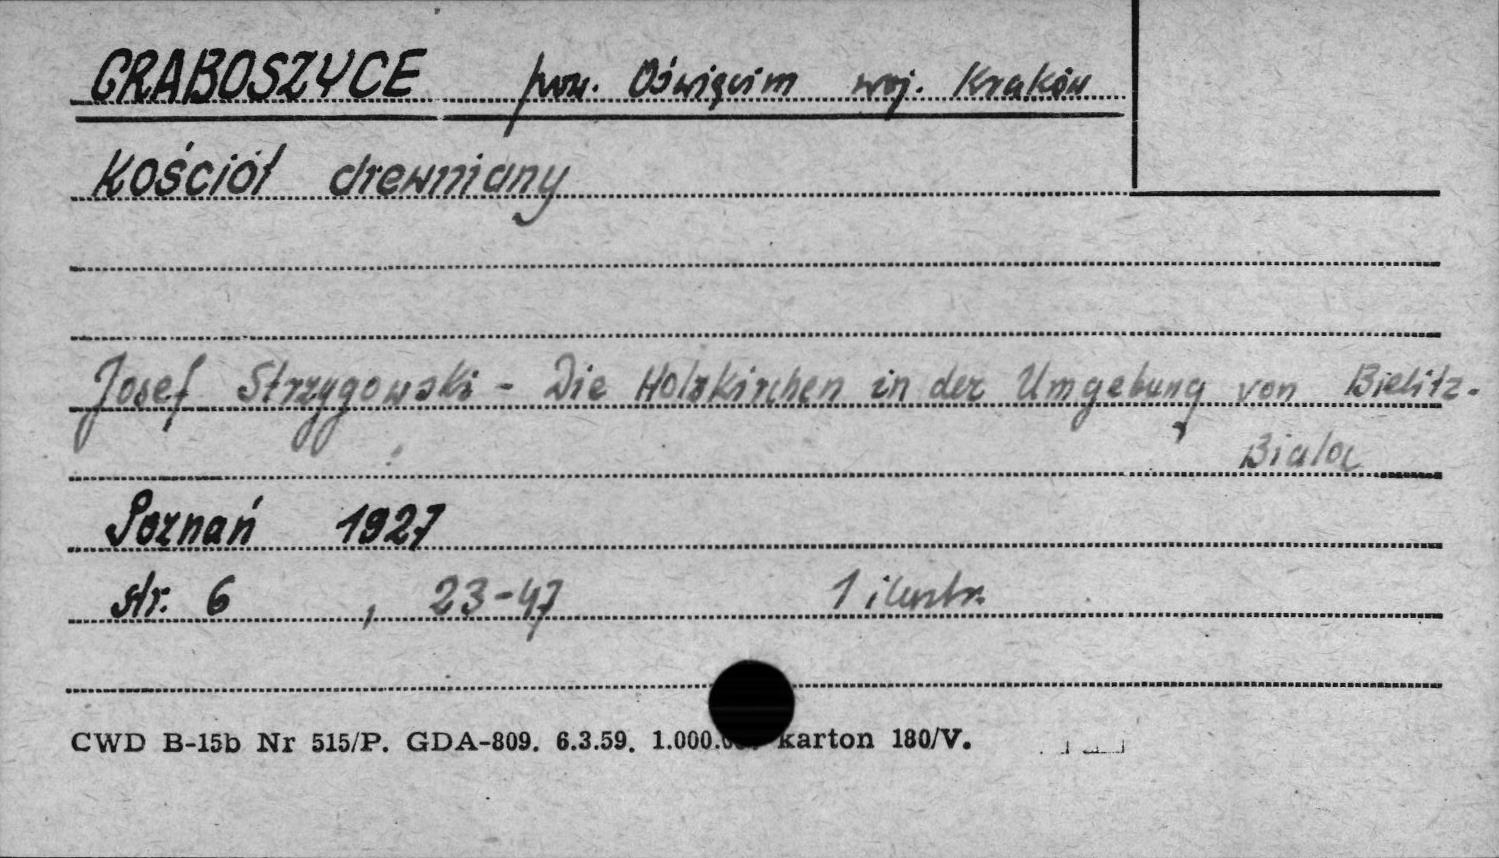 GRABOSZYCE pow. Oświęcim woj. Kraków
Kościół drewniany
Josef Strzygowski - Die Holzkirchen in der Umgebung von Bielitz-
Biala
Poznań 1927
str. 6 , 23-47 1 ilustr.
CWD B-15b Nr 515/P. GDA-809. 6.3.59. karton 180/V.